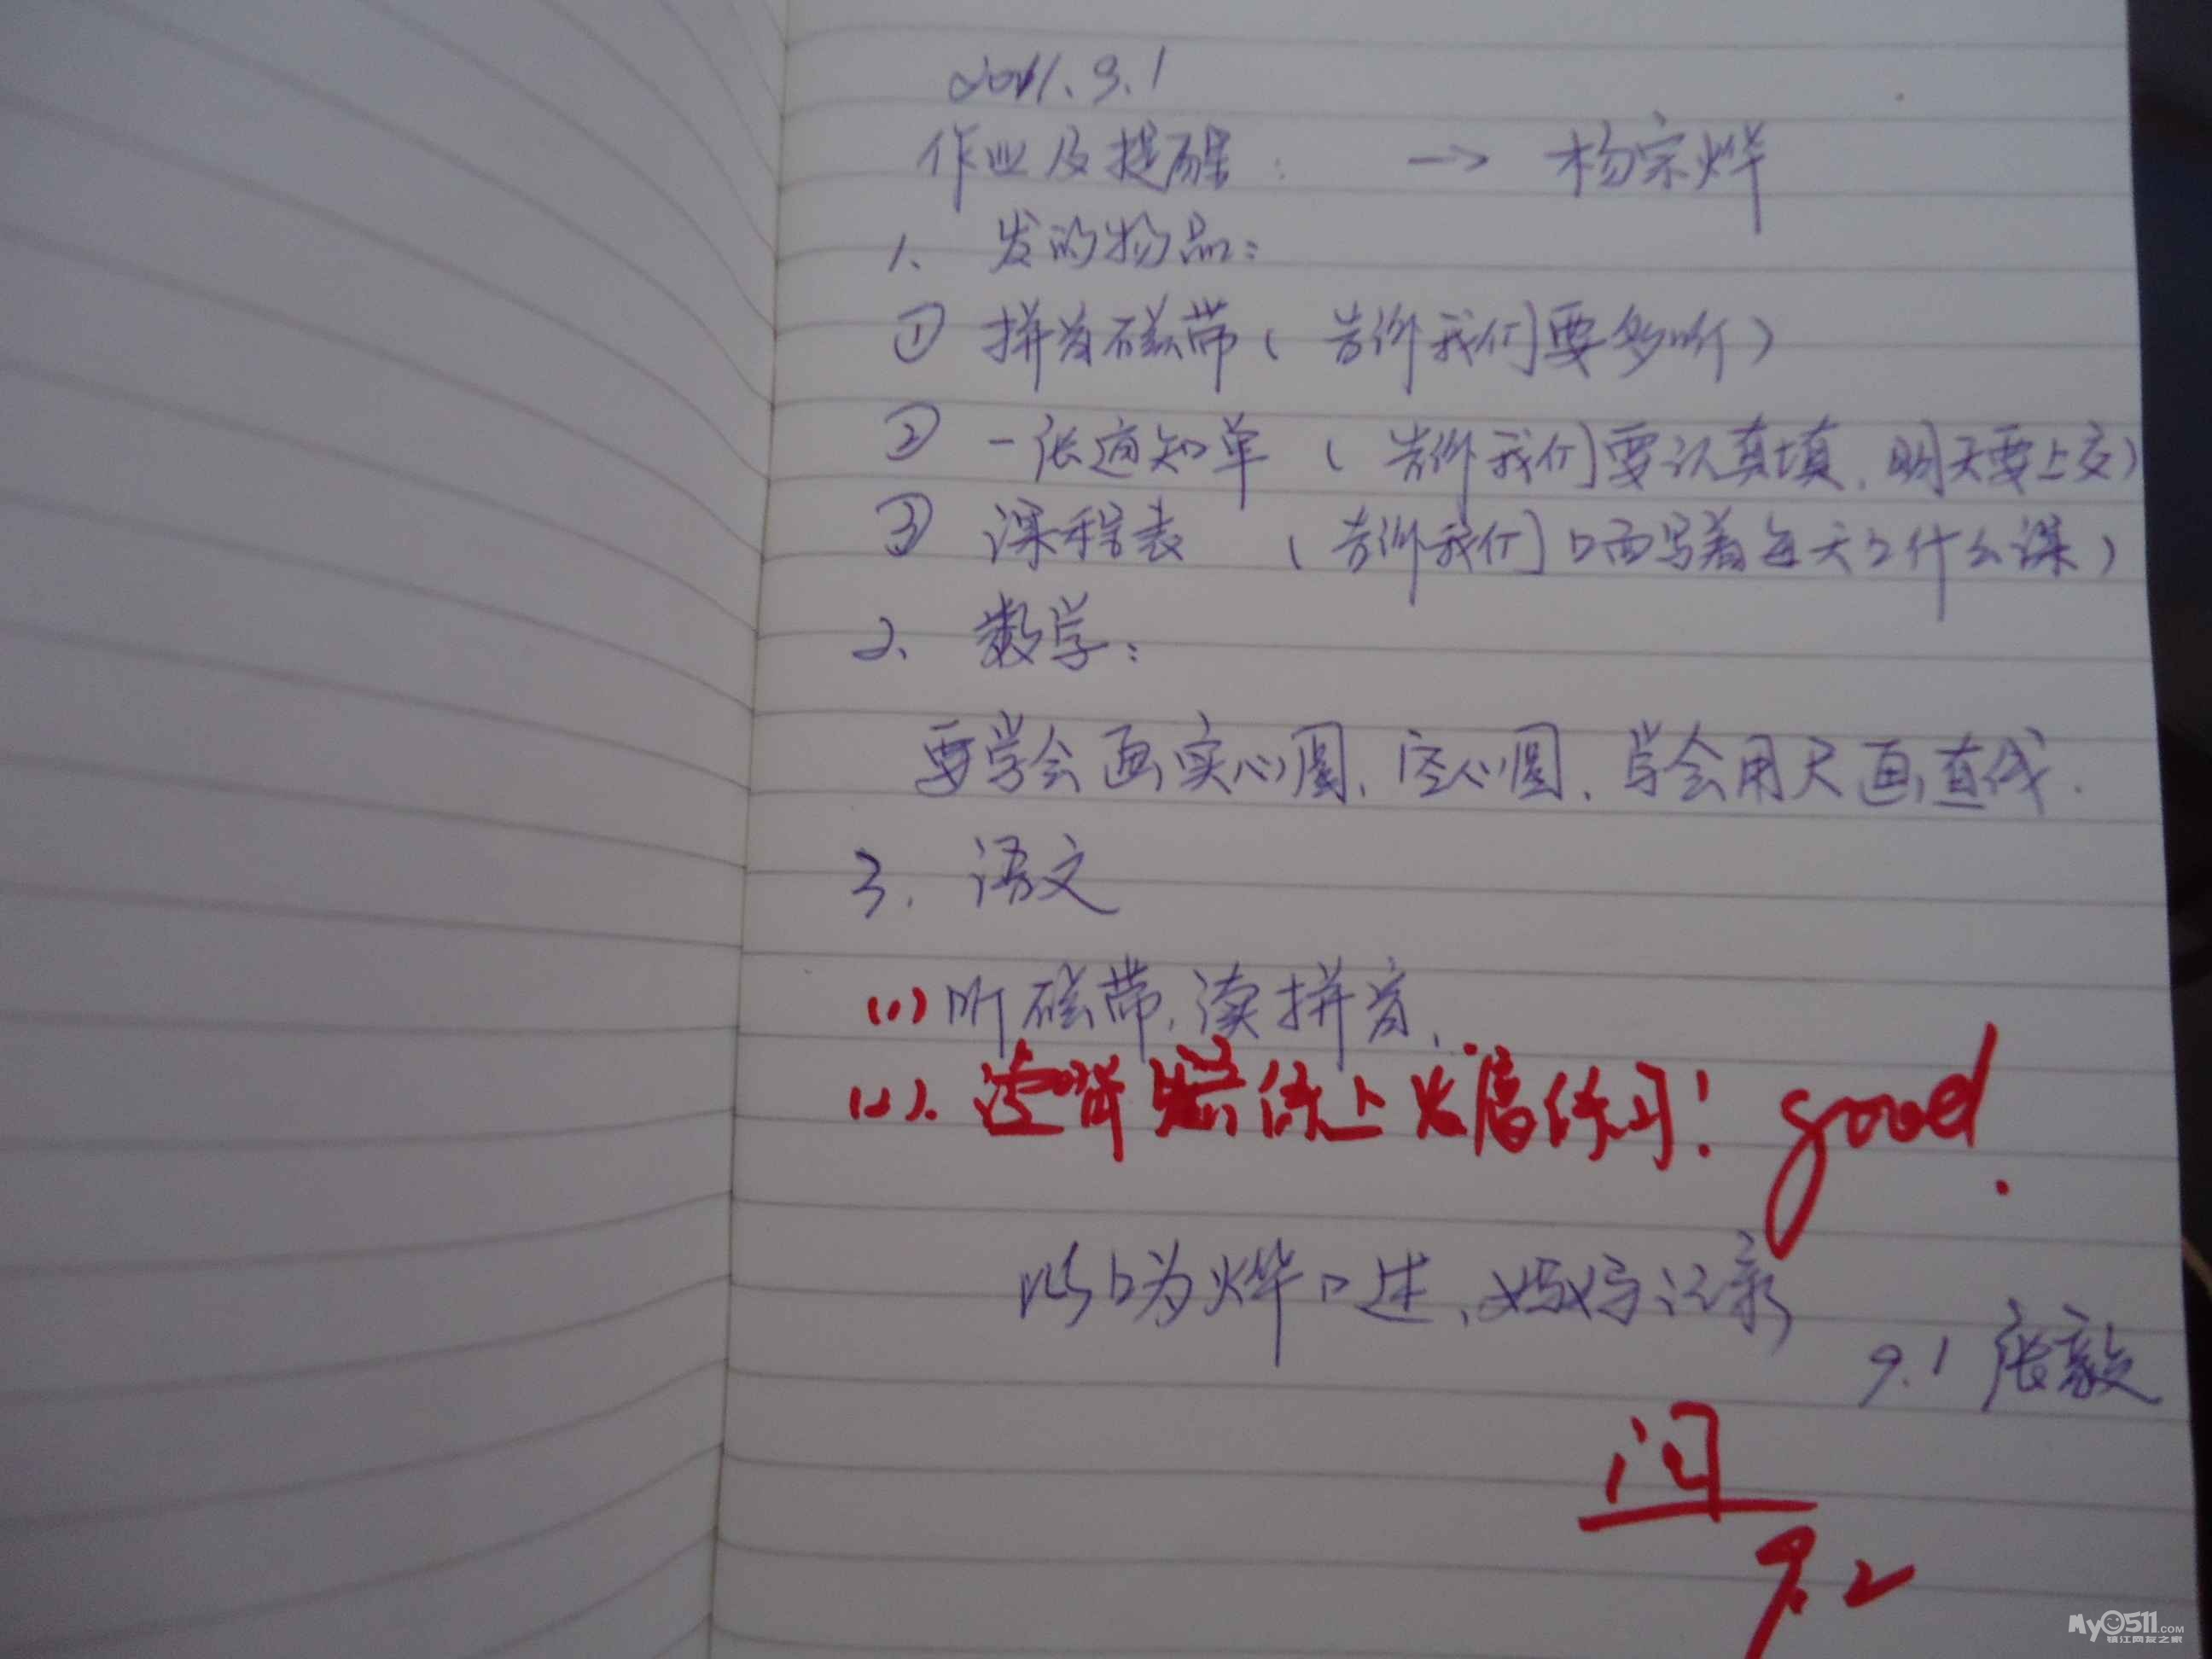 2011.9.1
作业及提醒: → 杨宗烨
1、发的物品:
① 拼音磁带(老师我们要多听)
② 一张通知单(老师我们要认真填,明天要上交)
③ 课程表(老师我们 上面写着每天上什么课)
2、数学:
要学会画实心圆、空心圆、学会用尺画直线.
3.语文
(1)听磁带,读拼音.
(2).读 上 练习! good.
以上为烨口述,妈妈记录
9.1 张毅
阅
9.2
My0511.COM
镇江网友之家